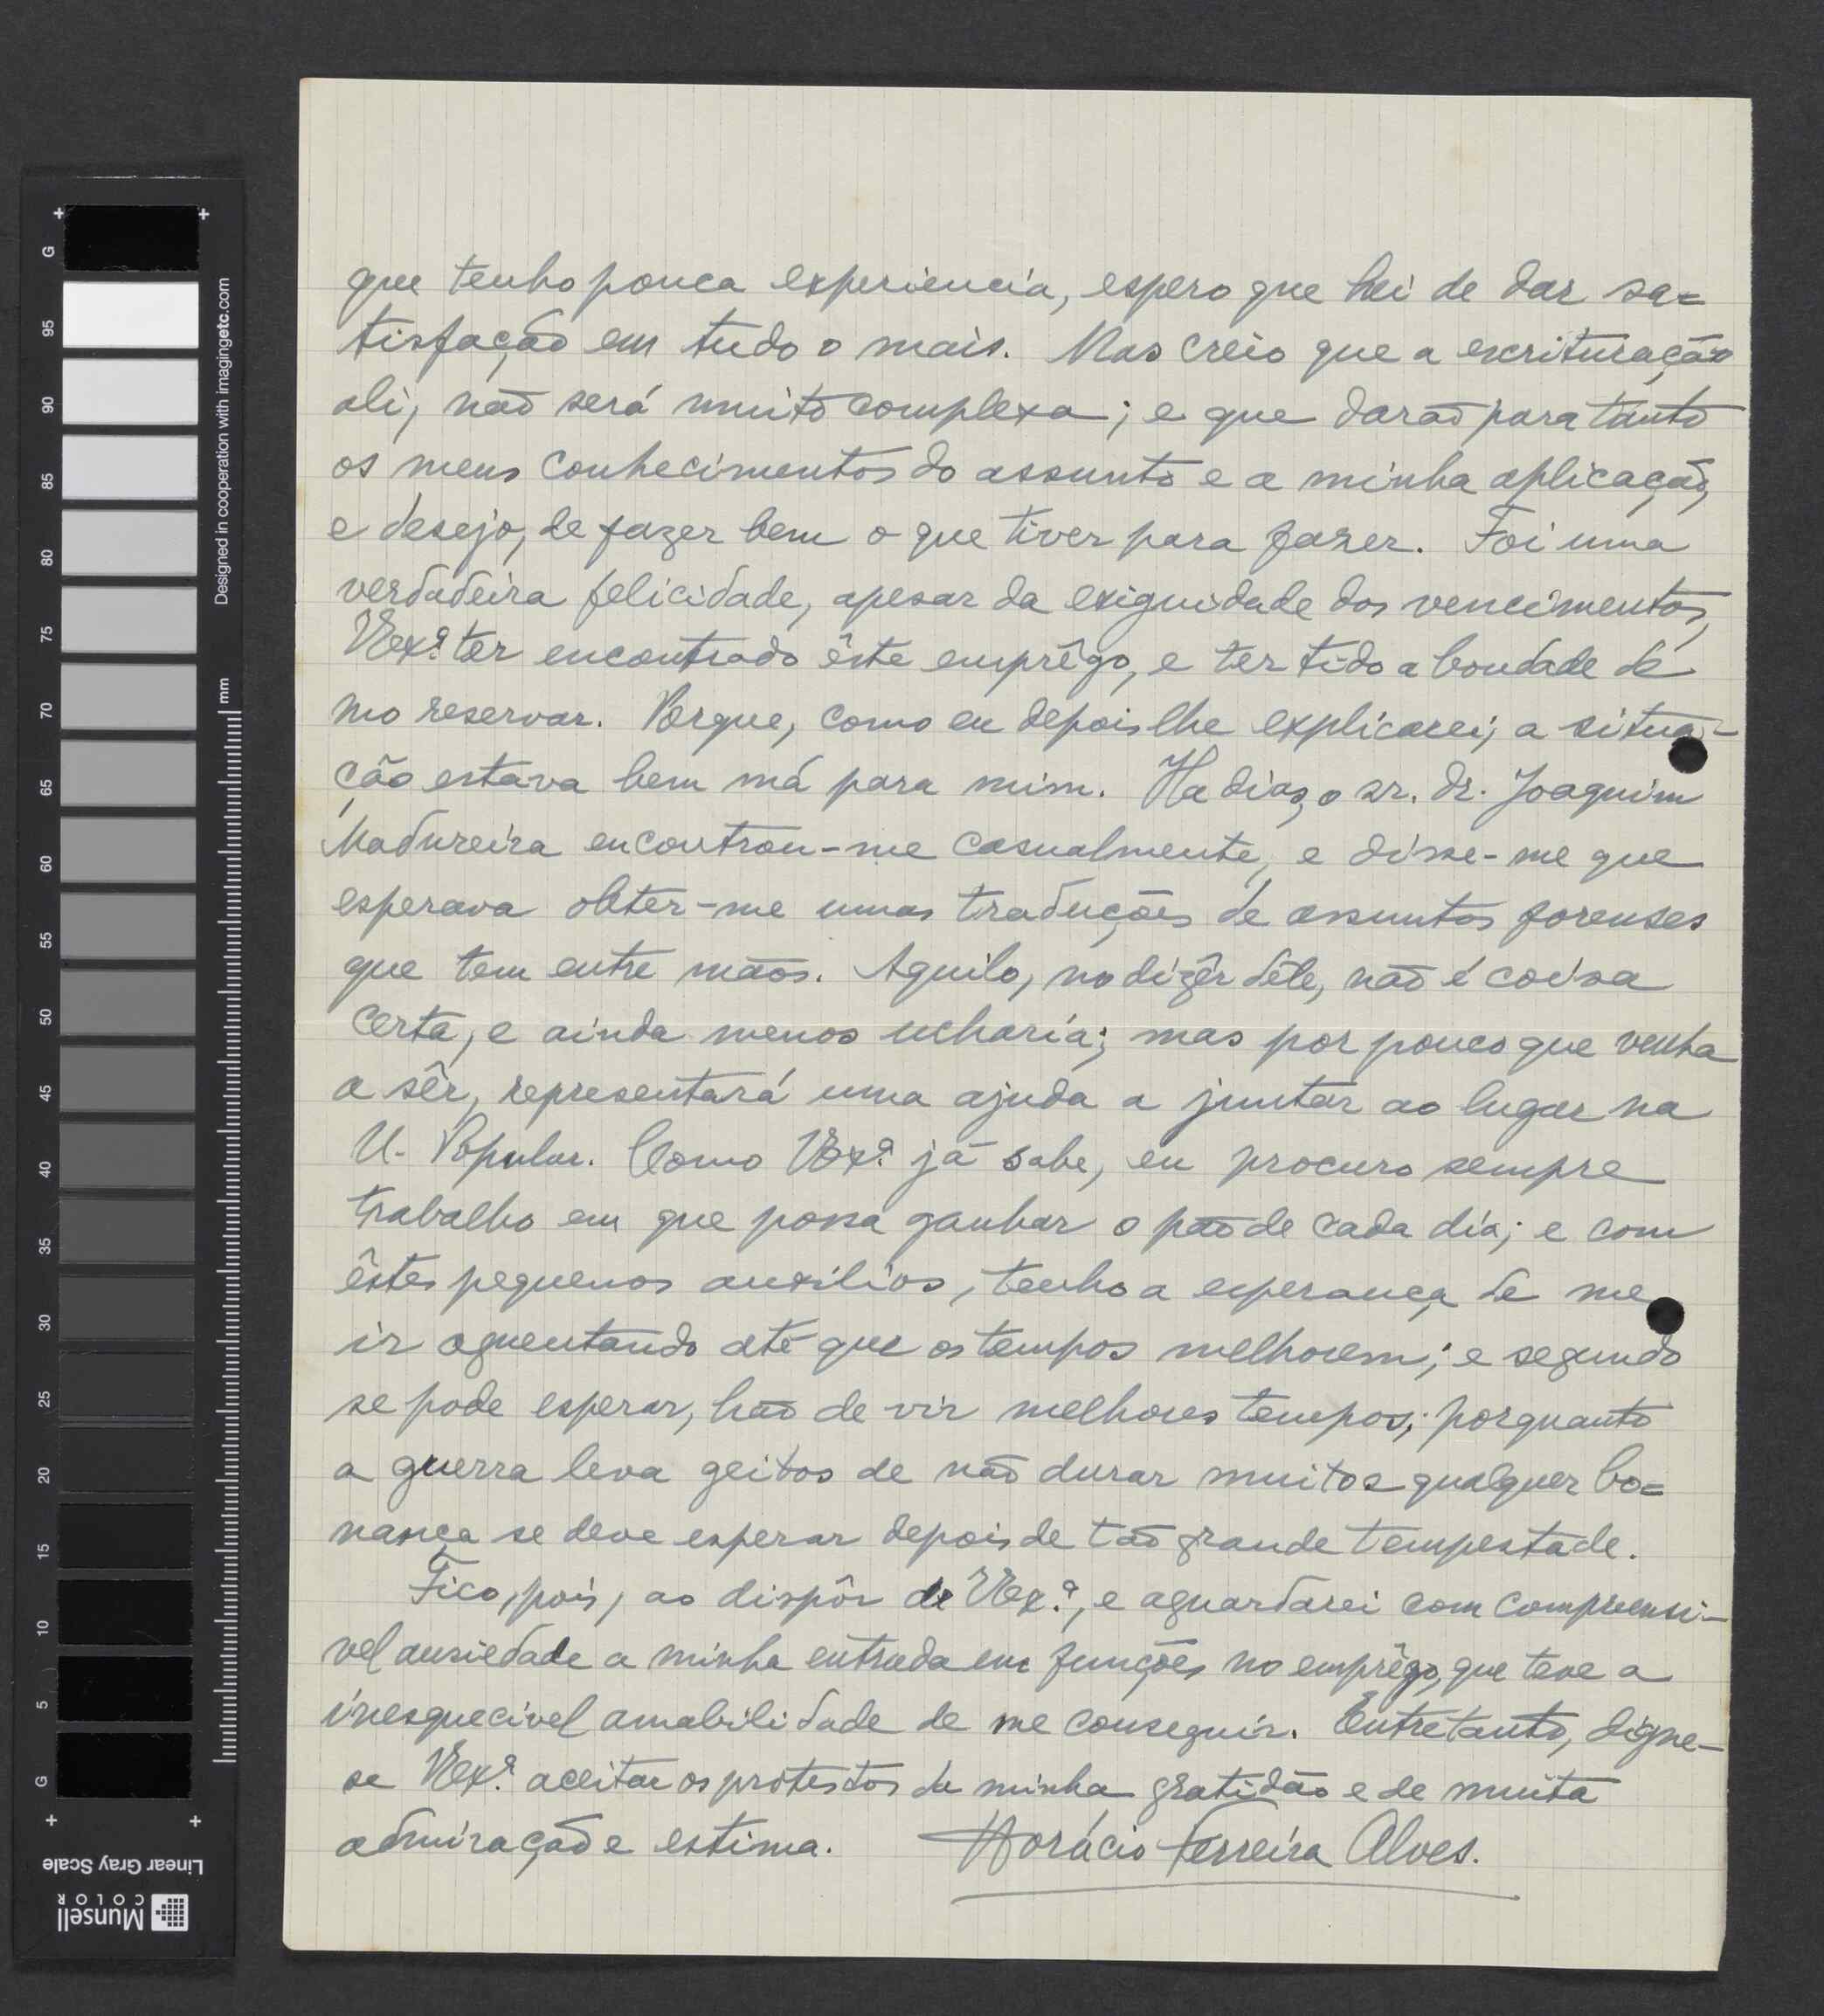 que tenho pouca experiencia, espero que hei de dar sa=
tisfação em tudo o mais. Mas creio que a escrituração
ali, não será muito complexa; e que darão para tanto
os meus conhecimentos do assunto e a minha aplicação,
e desejo, de fazer bem o que tiver para fazer. Foi uma
verdadeira felicidade, apesar da exiguidade dos vencimentos,
VExª. ter encontrado êste emprêgo, e ter tido a bondade de
mo reservar. Porque, como eu depois lhe explicarei, a situa-
ção estava bem má para mim. Ha dias, o sr. dr. Joaquim
Madureira encontrou-me casualmente, e disse-me que
esperava obter-me umas traduções de assuntos forenses
que tem entre mãos. Aquilo, no dizêr dêle, não é coisa
certa, e ainda menos ucharia; mas por pouco que venha
a sêr, representará uma ajuda a juntar ao lugar na
U. Popular. Como VExª. já sabe, eu procuro sempre
trabalho em que possa ganhar o pão de cada dia; e com
êstes pequenos auxilios, tenho a esperança de me
ir aguentando até que os tempos melhorem; e segundo
se pode esperar, hão de vir melhores tempos; porquanto
a guerra leva geitos de não durar muito e qualquer bo=
nança se deve esperar depois de tão grande tempestade.
Fico, pois, ao dispôr de VExª., e aguardarei com compreensi-
vel ansiedade a minha entrada em funções no emprêgo, que teve a
inesquecivel amabilidade de me conseguir. Entretanto, digne-
se VExª. aceitar os protestos da minha gratidão e de muita
admiração e estima. Horácio Ferreira Alves.
Designed in cooperation with imagingetc.com
mm
G 95 90 85 80 75 70 65 60 55 50 45 40 35 30 25 20 15 10 5 G
Linear Gray Scale
Munsell
COLOR